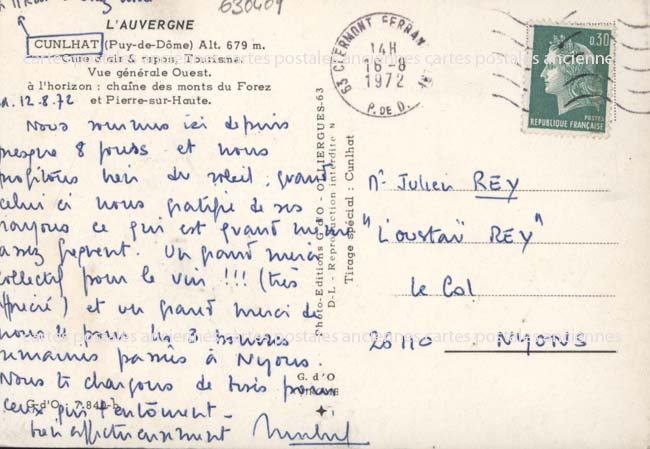 630409
L'AUVERGNE
CUNLHAT (Puy-de-Dôme) Alt. 679 m.
Cure d'air & repos, Tourisme.
Vue générale Ouest.
à l'horizon : chaîne des monts du Forez
et Pierre-sur-Haute.
12.8.72
Nous sommes ici depuis
presque 8 jours et nous
profitons bien du soleil, quand
celui ci nous gratifie de ses
rayons ce qui est quand même
assez fréquent. Un grand merci
collectif pour le vin !!! (très
apprécié) et un grand merci de
nous pour les 3 bonnes
semaines passées à Nyons.
Nous te chargeons de bises pour
ceux qui t'entourent -
bien affectueusement
G-d'O 7.840
Photo-Editions G-d'O - OLLIERGUES-63
D-L - Reproduction interdite
Tirage spécial : Cunlhat
G. d'O
63 CLERMONT FERRAND
14H
16-8
1972
P. DE D.
0,30
POSTES
REPUBLIQUE FRANÇAISE
Mr Julien REY
"L'oustaü REY"
Le Col
26110 NYONS
cartes postales anciennes cartes postales anciennes cartes postales anciennes
cartes postales anciennes cartes postales anciennes cartes postales anciennes